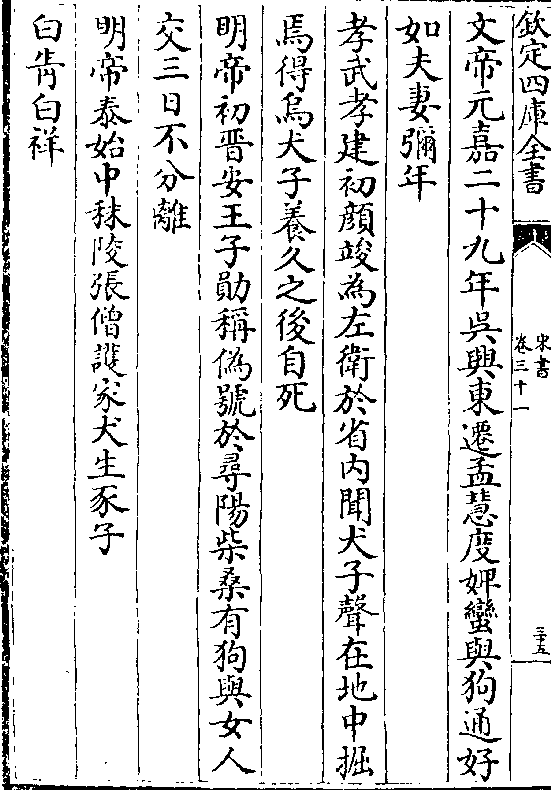 欽定四庫全書
宋書
卷三十一
三十五
文帝元嘉二十九年吳興東遷孟慧度婢蠻與狗通好
如夫妻彌年
孝武孝建初顔竣為左衛於省內聞犬子聲在地中掘
焉得烏犬子養久之後自死
明帝初晋安王子勛稱偽號於尋陽柴桑有狗與女人
交三日不分離
明帝泰始中秣陵張僧護家犬生豕子
白眚白祥